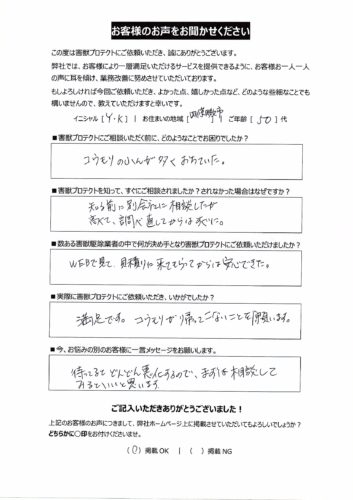 お客様のお声をお聞かせください
この度は害獣プロテクトにご依頼いただき、誠にありがとうございます。
弊社では、お客様により一層満足いただけるサービスを提供できるように、お客様お一人お一人
の声に耳を傾け、業務改善に努めさせていただいております。
もしよろしければ今回ご依頼いただき、よかった点、嬉しかった点など、どのような些細なことでも
構いませんので、教えていただけますと幸いです。
イニシャル [ Y・K ] お住まいの地域 [ 市 ] ご年齢 [ 50 ] 代
■害獣プロテクトにご相談いただく前に、どのようなことでお困りでしたか？
コウモリのふんが多く おちていた。
■害獣プロテクトを知って、すぐにご相談されましたか？されなかった場合はなぜですか？
知る前に別会社に相談したが
高くて、調べ直してからはすぐに。
■数ある害獣駆除業者の中で何が決め手となり害獣プロテクトにご依頼いただけましたか？
WEBで見て、見積りに来てもらってからは安心できた。
■実際に害獣プロテクトにご依頼いただき、いかがでしたか？
満足です。 コウモリが帰ってこないことを願います。
■今、お悩みの別のお客様に一言メッセージをお願いします。
待ってると どんどん悪化するので、まずは相談して
みるといいと思います
ご記入いただきありがとうございました！
上記のお客様のお声につきまして、弊社ホームページ上に掲載させていただいてもよろしいでしょうか？
どちらかに○印をお付けくださいませ。
( ○ ) 掲載OK | ( ) 掲載NG